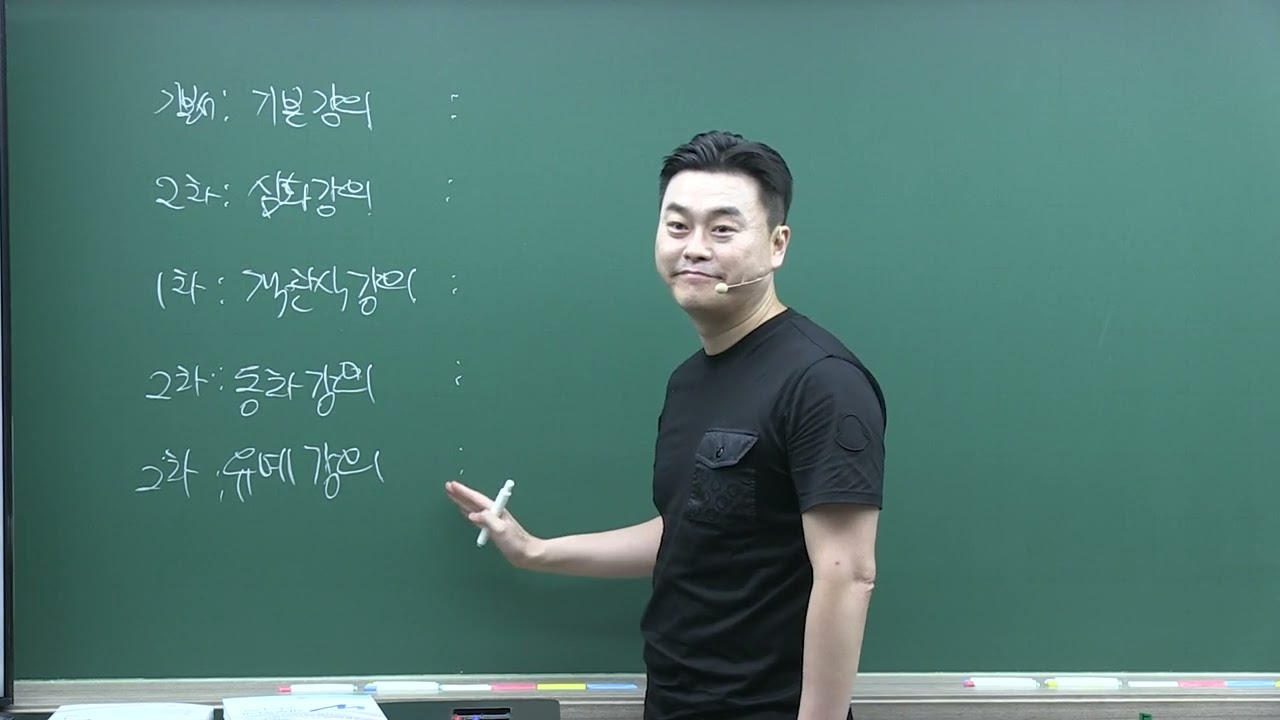 기본서: 기본강의 :
2차: 심화강의 :
1차: 객관식강의 :
2차: 동차강의 :
2차: 유예강의 :